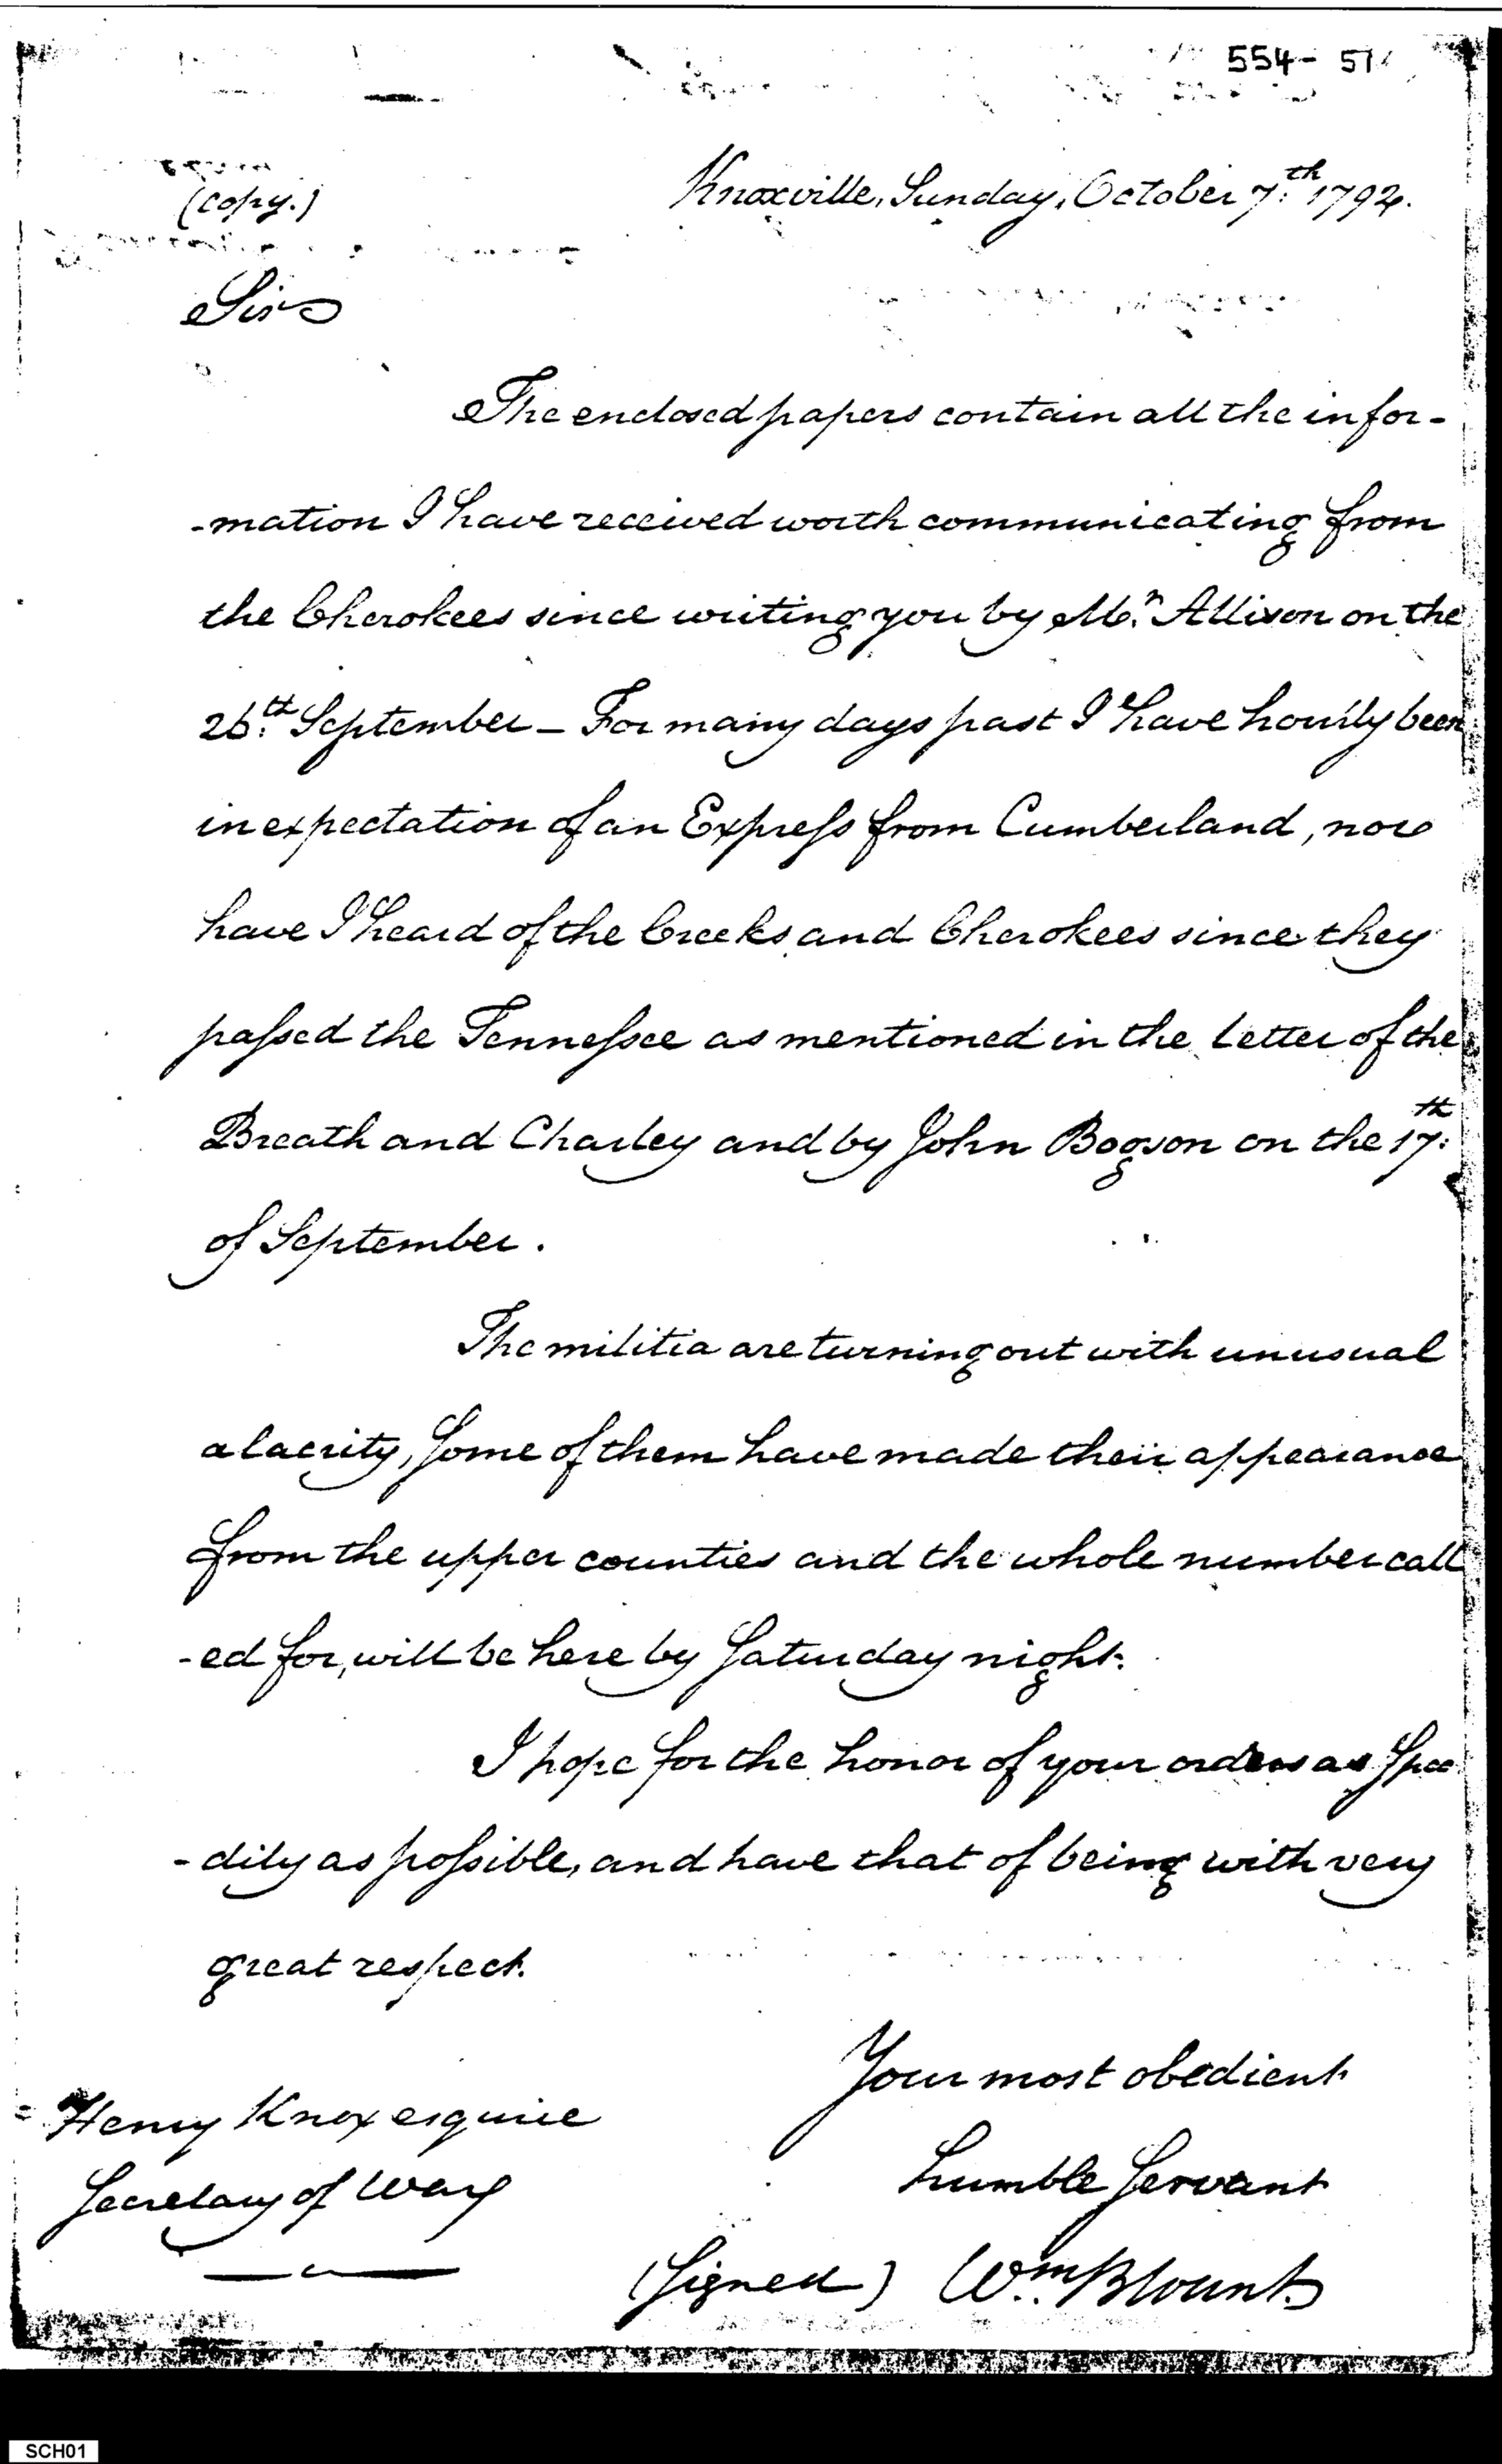 554-57
(Copy.)
Knoxville, Sunday, October 7th. 1792.
Sir
The enclosed papers contain all the infor-
-mation I have received worth communicating from
the Cherokees since writing you by Mr. Allison on the
26th. September - For many days past I have hourly been
in expectation of an Express from Cumberland, nor
have I heard of the Creeks and Cherokees since they
passed the Tennessee as mentioned in the Letter of the
Breath and Charley and by John Bogson on the 17th.
of September.
The militia are turning out with unusual
alacrity, some of them have made their appearance
from the upper counties and the whole number call
-ed for, will be here by Saturday night.
I hope for the honor of your orders as spee
-dily as possible, and have that of being with very
great respect.
Your most obedient
humble Servant
(Signed) Wm. Blount
Henry Knox esquire
Secretary of War
SCH01